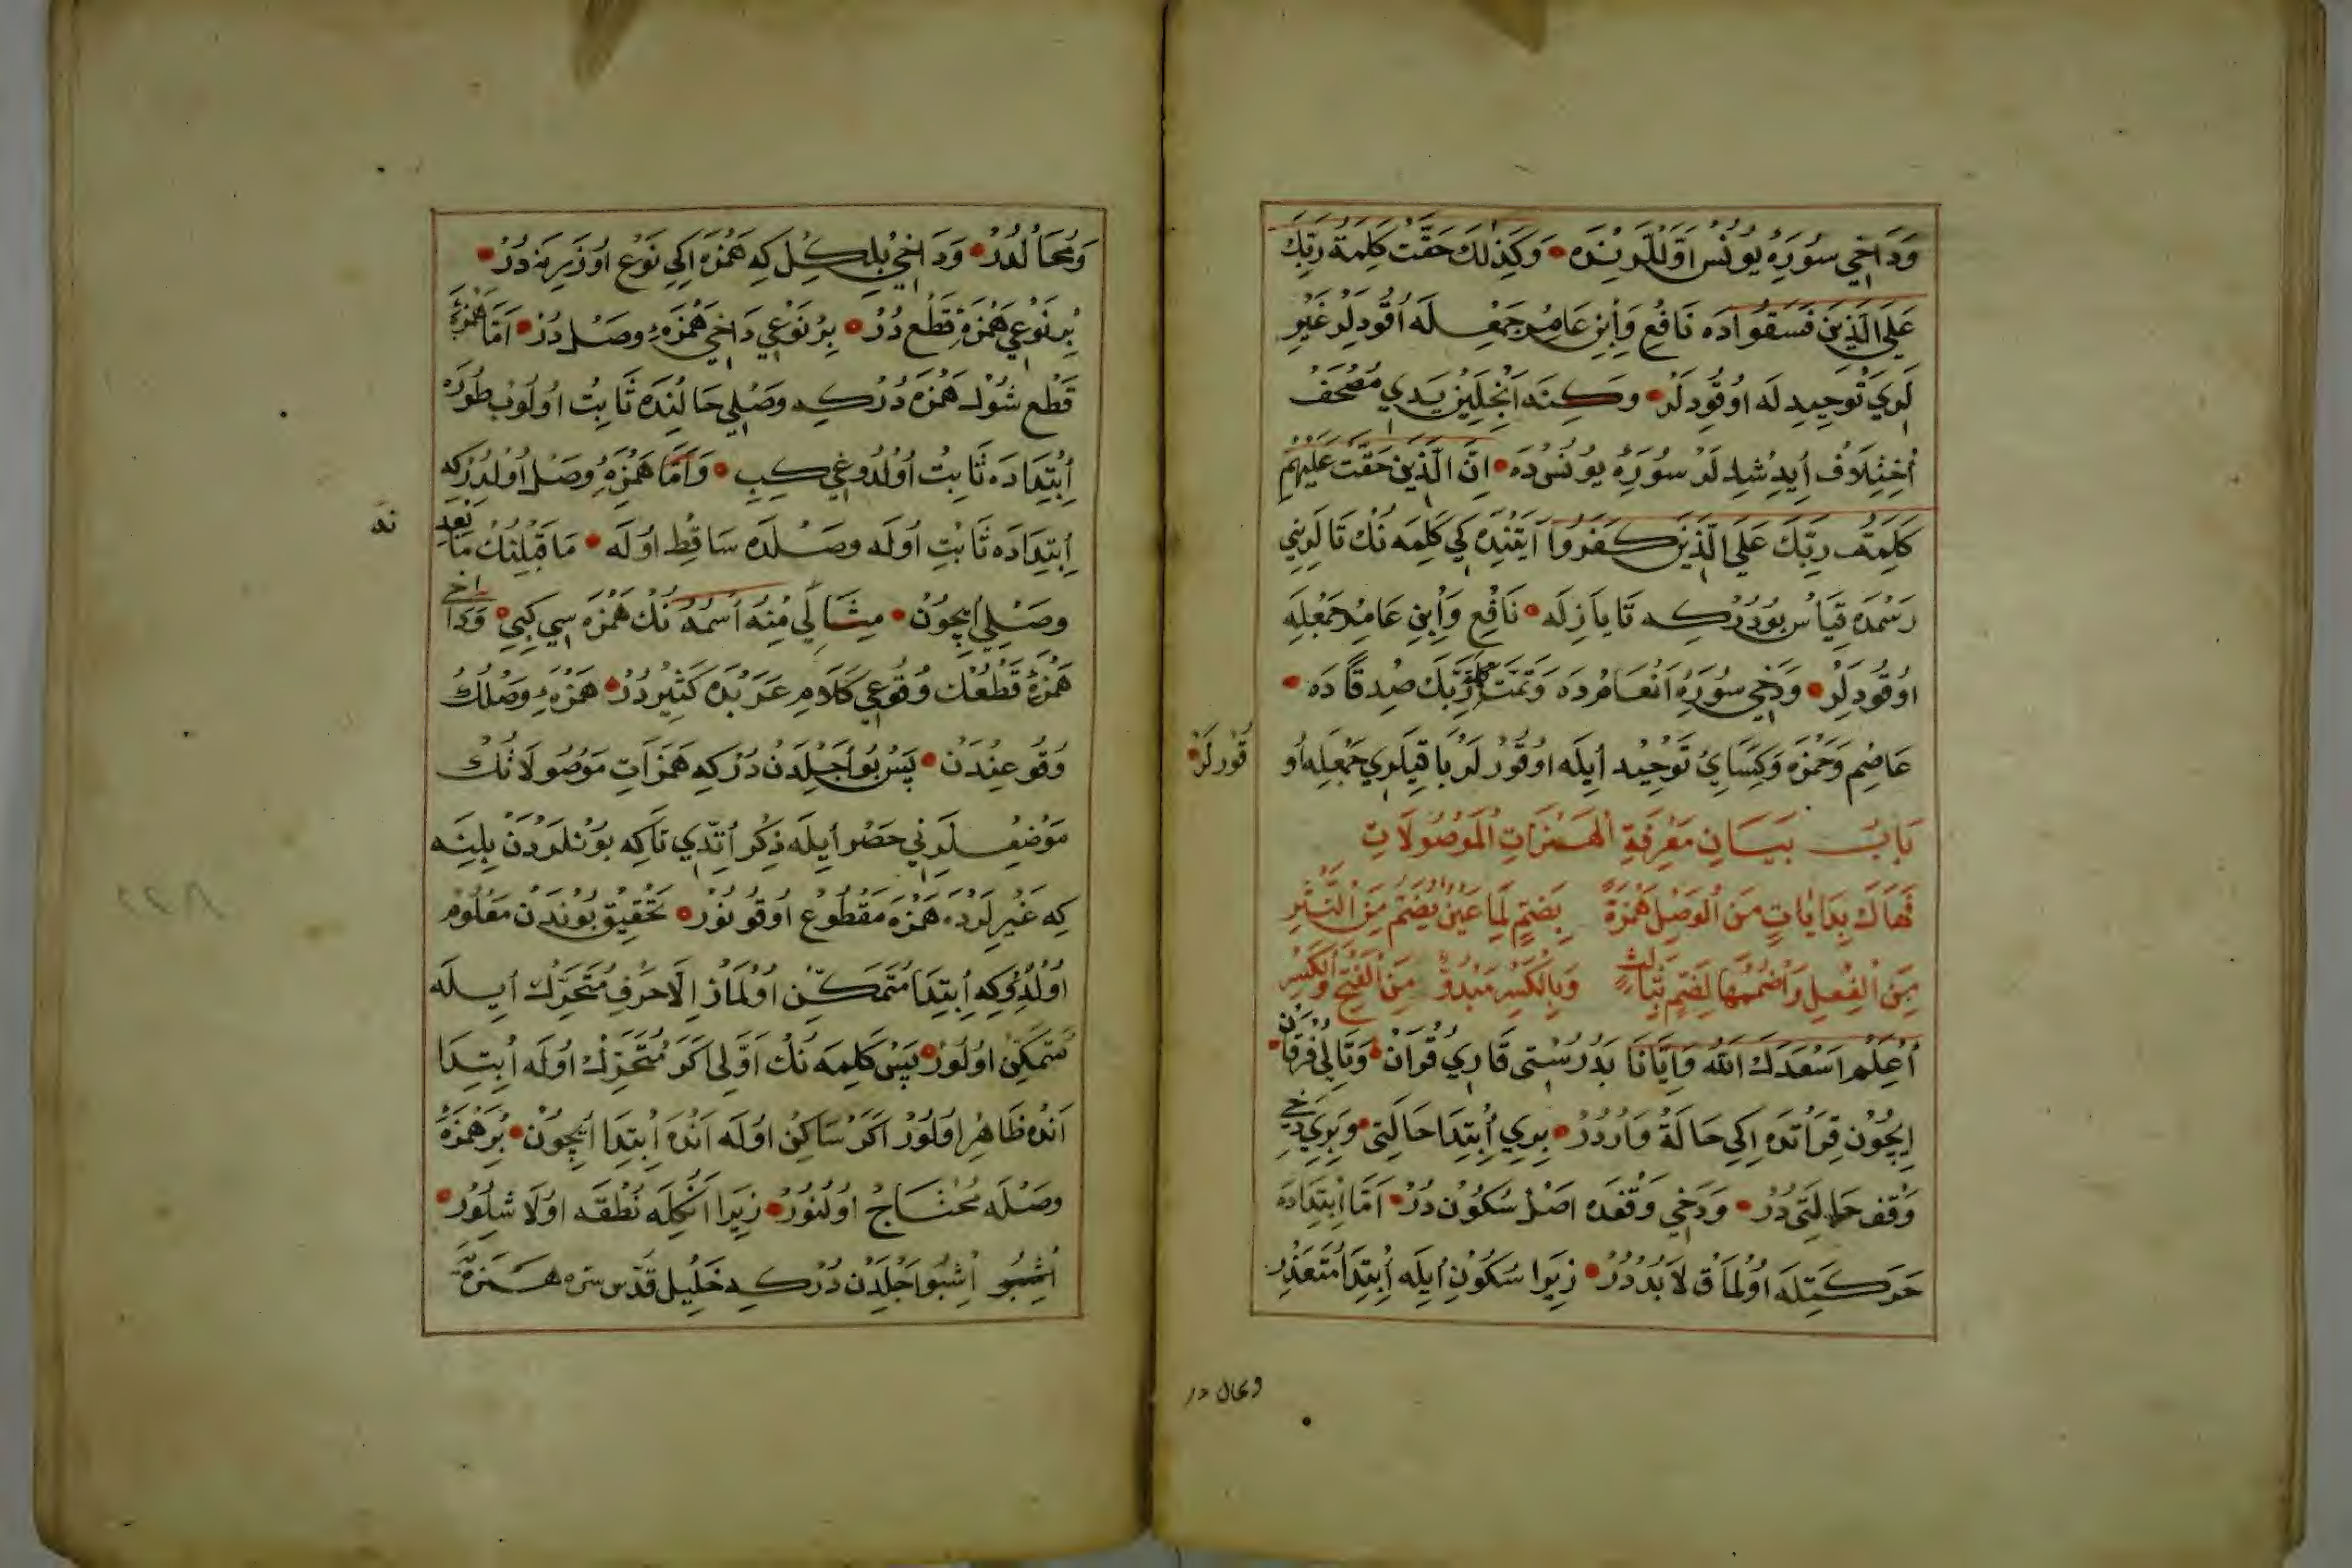 وَدَاخِي سُورَهِٔ يُونُسْ اَوَّلْلَرِنْدَه • وَكَذٰلِكَ حَقَّتْ كَلِمَةُ رَبِّكَ
عَلَى الَّذِينَ فَسَقُوا دَه نَافِعِ وَأِبْنِ عَامِرْ جَمْعِلَه اُقُودِلَرْ غَيْرِ
لَرِي تَوْحِيدِلَه اوُقُودِلَرْ • وَكِنَه اَنْجِلَيِنْ يَدِي مُصْحَفْ
أخِتِلَافْ أِيدِشْدِلَرْ سُورَهِٔ يُونُسْدَه • اِنَّ الَّذِينَ حَقَّتْ عَلَيْهِمْ
كَلِمَتُ رَبِّكَ عَلَى الَّذِينَ كَفَرُوا آيَتِنْدَه كِي كَلِمَه نُكْ تَالَرِينِي
رَسْمَدَه قِيَاسْ بُودُرْكِه تَا يَازِلَه • نَافِعِ وَأِبْنِ عَامِرْ جَمْعِلَه
اوُقُودِلَرْ • وَدَخِي سُورَهِٔ اَنْعَامْدَه وَتَمَّتْ كَلِمَةُ رَبِّكَ صِدْقًا دَه •
عَاصِمِ وَحَمْزَه وَكِسَائِ تَوْحِيدْ أيِلَه اوُقُورْلَرْ بَاقِيلَرِي جَمْعِلَه اُو
قُورلَرْ •
بَابُ بَيَانِ مَعْرِفَةِ الْهَمَزَاتِ الْمَوْصُولَاتِ
فَهَاكَ بِدَايَاتٍ مِنَ الْوَصْلِ هَمْزَةً بِضَمٍّ لِمَا عَيْنٌ يُضَمُّ مِنَ النَّشْرِ
مِنَ الْفِعْلِ وَاضْمُمْهَا لِضَمِّ ثَالِثٍ وَبِالْكَسْرِ مَبْدُوٌّ مِنَ الْفَتْحِ وَالْكَسْرِ
أعْلَمْ اَسْعَدَكَ اللّٰه وَاِيَّانَا بَدُرُسْتِى قَارِيُ قُرآنْ • وَتَالِيُ فُرْقَانْ •
اِيچُونْ قِرَأتْدَه اِكِي حَالَةْ وَارْدُرْ • بِرِي أِبْتِدَا حَالَتِى • وَبِرِي دَخِي
وَقْفْ حَالَتِى دُرْ • وَدَخِي وَقْفَدَه اصْلْ سُكُونْ دُرْ • اَمَّا اِبْتِدَادَه
حَرَكَتِلَه اوُلْمَاقْ لَابُدْدُرْ • زِيرَا سُكُونِ أيِلَه أِبْتِدَا مُتَعَذِّرْ
ومحال در
وَمُحَالْدُرْ • وَدَاخِي بِلْكِلْ كِه هَمْزَه اِكِي نَوْعْ اوُزَرِينَه دُرْ •
بِرْ نَوْعِي هَمْزَهِٔ قَطْعْ دُرْ • بِرْ نَوْعِي دَاخِي هَمْزَهِٔ وَصْلْ دُرْ • اَمَّا هَمْزَهِٔ
قَطْعْ شُولْ هَمْزَه دُرْكِه وَصْلِي حَالِنْدَه ثَابِتْ اوُلُوبْ طُورُرْ
أِبْتِدَادَه ثَابِتْ اُولْدُوغِي كِبِي • وَاَمَّا هَمْزَهِٔ وَصْلْ اوُلْدُرْكِه
اِبْتِدَادَه ثَابِتْ اُولَه وَصْلَدَه سَاقِطْ اوُلَه • مَاقَبْلِنُكْ مَا بَعْدِ
نه
وَصْلِي اِيچُونْ • مِثَالِي مِنْهُ اسْمُهُ نُكْ هَمْزَه سِي كِبِي • وَدَاخِي
هَمْزَهِٔ قَطْعُكْ وُقُوعِي كَلَامِ عَرَبْدَه كَثِيرْدُرْ • هَمْزَهِٔ وَصْلُكْ
وُقُوعِنْدَنْ • پَسْ بُو اَجِلْدَنْ دُرْكِه هَمَزَاتِ مَوْصُولَانُكْ
مَوْضِعْلَرِنِي حَصْرْ أيِلَه ذِكْرْ اَتْدِي تَاكِه بُونْلَرْدَنْ بِلِينَه
كِه غَيْرِلَرْدَه هَمْزَه مَقْطُوعْ اوُقُونُورْ • تَحْقِيقْ بُونْدَنْ مَعْلُومْ
اوُلْدُوكِه اِبْتِدَا مُتَمَكِّنْ اوُلْمَازْ اِلَّا حَرْفِ مُتَحَرِّكْ أيِلَه
مُتَمَكِّنْ اوُلُورْ • پَسْ كَلِمَه نُكْ اَوَّلِى اَكَرْ مُتَحَرِّكْ اوُلَه اُبْتِدَا
اَنْدَه ظَاهِرْ اوُلُورْ اَكَرْ سَاكِنْ اوُلَه اَنْدَه اِبْتِدَا اِيچُونْ • بِرْ هَمْزَهِٔ
وَصْلَه مُحْتَاجْ اوُلُنُورْ • زِيرَا اَنُكْلَه نُطْقَه اوُلَاشِلُورْ •
اُشْبُو اُشْبُو اَجْلِدَنْ دُرْكِه خَلِيلْ قُدِّسَ سِرُّه هَمْزَهِٔ